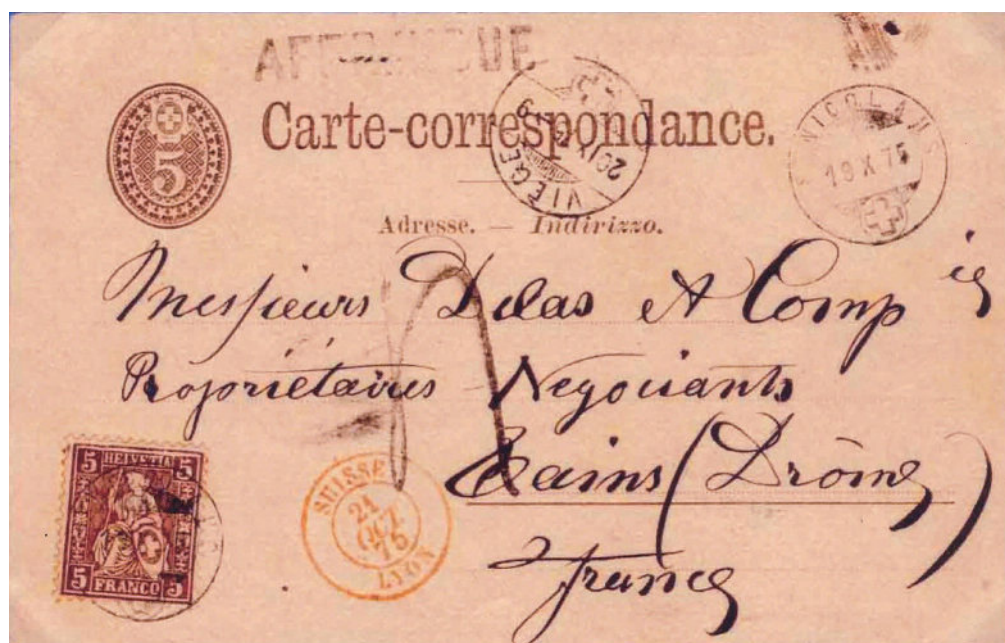 AFFRANQUE
5
Carte-correspondance.
VIÈGE
20 X 75
ST NICOLAUS
19 X 75
Adresse. — Indirizzo.
Messieurs Delas et Comp ie
Propriétaires Negociants
Tains (Drôme)
France
5 HELVETIA 5
5 FRANCO 5
SUISSE
21
OCT
75
LYON